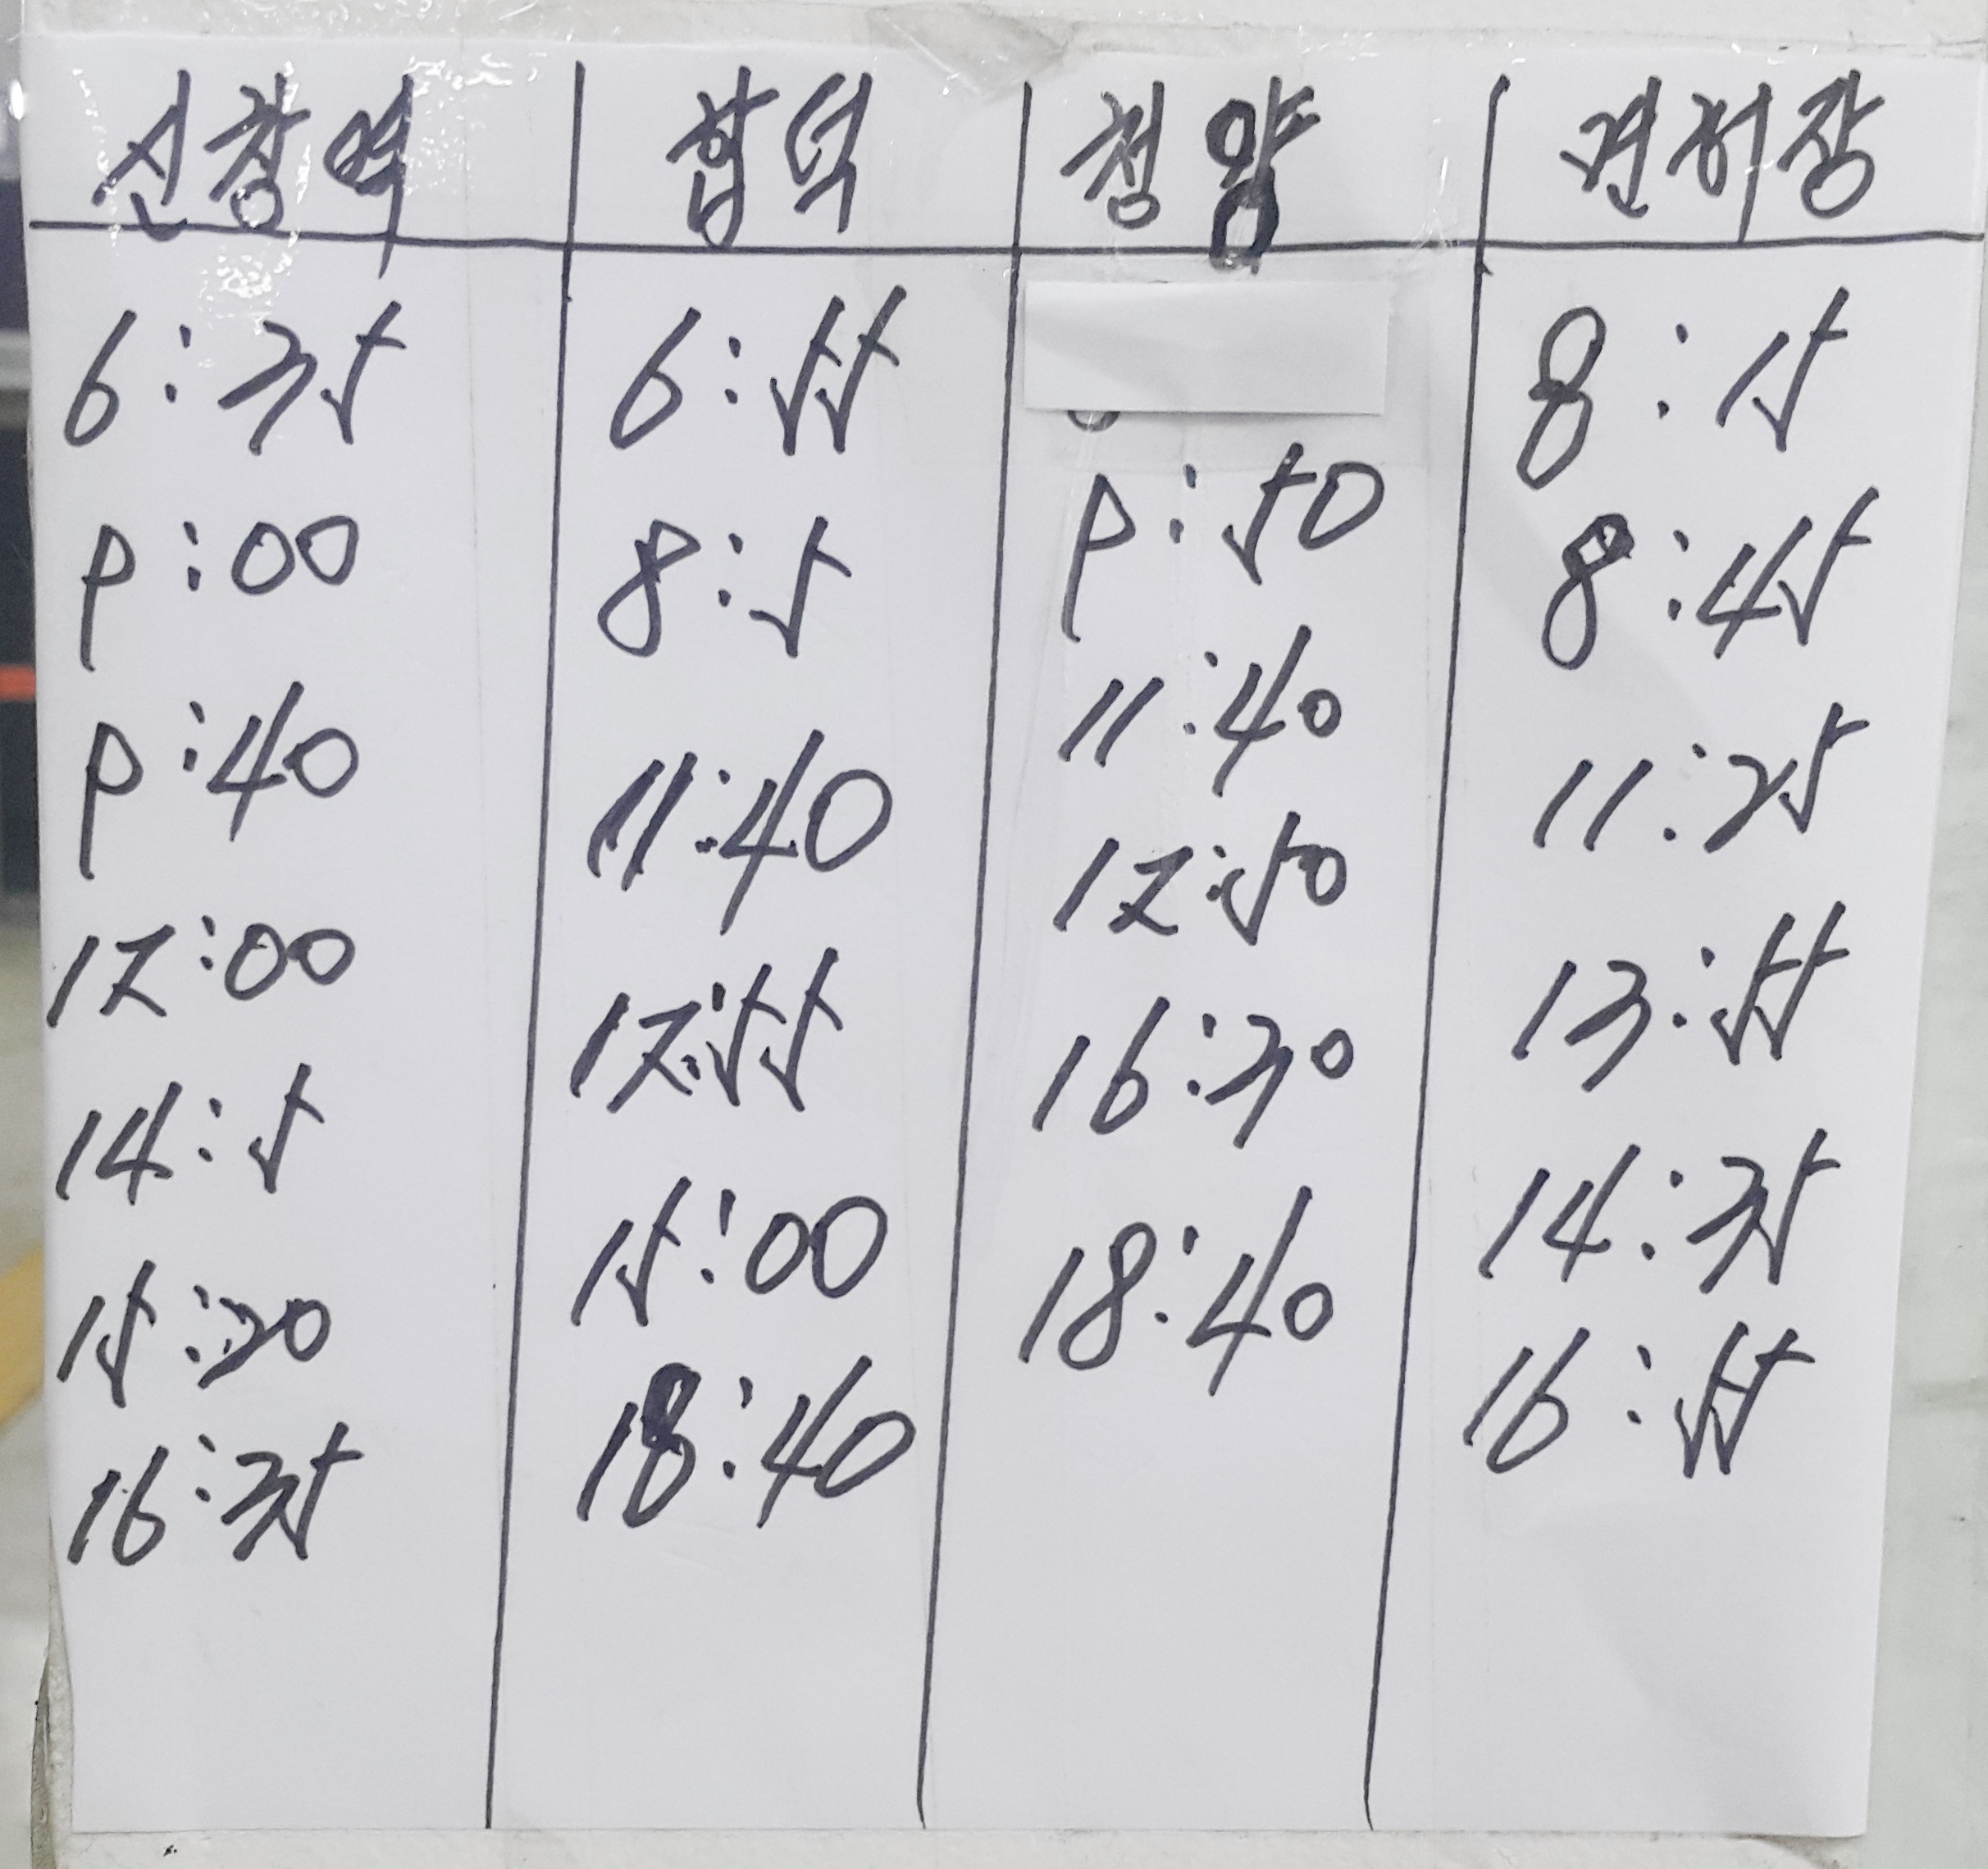 신창역 합덕 청양 면허장
6:35 6:55 8:15
9:00 8:5 9:50 8:45
9:40 11:40 11:40 11:25
12:00 12:55 12:50 13:55
14:5 15:00 16:30 14:35
15:20 18:40 18:40 16:55
16:35